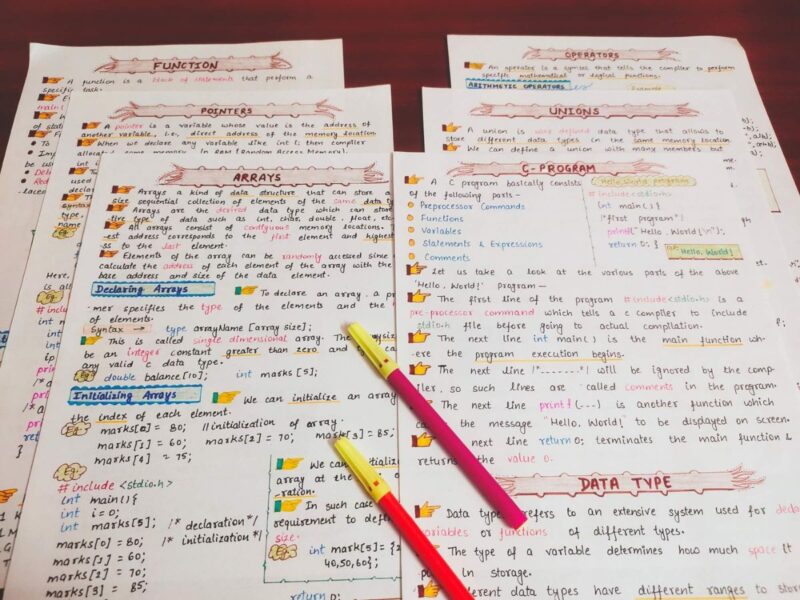 FUNCTION
A function is a block of statements that perform a
specifi
task.
main(
of stat
To
Im
be us
De
Red
POINTERS
A pointer is a variable whose value is the address of
another variable, i.e, direct address of the memory location
When we declare any variable like int i; then compiler
some memory in RAM (Random Access Memory).
used
declar
Syntax
type,
name
Eg
Here,
is al
Eg
# inclu
int m
int
ip
print
/*
prin
retu
ARRAYS
Arrays a kind of data structure that can store a
size sequential collection of elements of the same data ty
Arrays are the desired data type which can stor
tive type of data such as int, char, double, float, etc
All arrays consist of contiguous memory locations. T
est address corresponds to the first element and highest
ss to the last element.
Elements of the array can be randomly accessed since
calculate the address of each element of the array with the
base address and size of the data element.
Declaring Arrays
To declare an array, a p
mer specifies the type of the elements and the
of elements.
Syntax → type arrayName [array size];
This is called single dimensional array. The
be an integer constant greater than zero and
any valid c data type.
Eg double balance[10]; int marks [5];
Initializing Arrays
We can initialize an array
the index of each element.
Eg marks[0] = 80; //initialization of array.
marks[1] = 60; marks[2] = 70; marks[3] = 85;
marks[4] = 75;
Eg
# include <stdio.h>
int main(){
int i=0;
int marks[5]; /* declaration*/
marks[0] = 80; /* initialization */
marks[1] = 60;
marks[2] = 70;
marks[3] = 85;
We can initializ
array at the
ration.
In such case
requirement to defi
size.
Eg int mark[5]= {2
40,50,60};
return 0;
OPERATORS
An operator is a symbol that tells the compiler to perform
specific mathematical or logical functions.
ARITHMETIC OPERATORS
UNIONS
A union is user defined data type that allows to
store different data types in the same memory location.
We can define a union with many members but
C-PROGRAM
A C program basically consists
of the following parts -
Preprocessor Commands
Functions
Variables
Statements & Expressions
Comments
Hello World program
#include<stdio.h>
int main() {
/*first program*/
printf("Hello, World!\n");
return 0; }
Hello, World!
Let us take a look at the various parts of the above
'Hello, World!' Program—
The first line of the program #include<stdio.h> is a
pre-processor command which tells a c compiler to include
stdio.h file before going to actual compilation.
The next line int main() is the main function wh-
ere the program execution begins.
The next line /*.......*/ will be ignored by the comp-
iler, so such lines are called comments in the program.
The next line printf(...) is another function which
the message "Hello, World!" to be displayed on screen.
next line return 0; terminates the main function &
returns the value 0.
DATA TYPE
Data type refers to an extensive system used for decla
variables or functions of different types.
The type of a variable determines how much space it
in storage.
different data types have different ranges to store